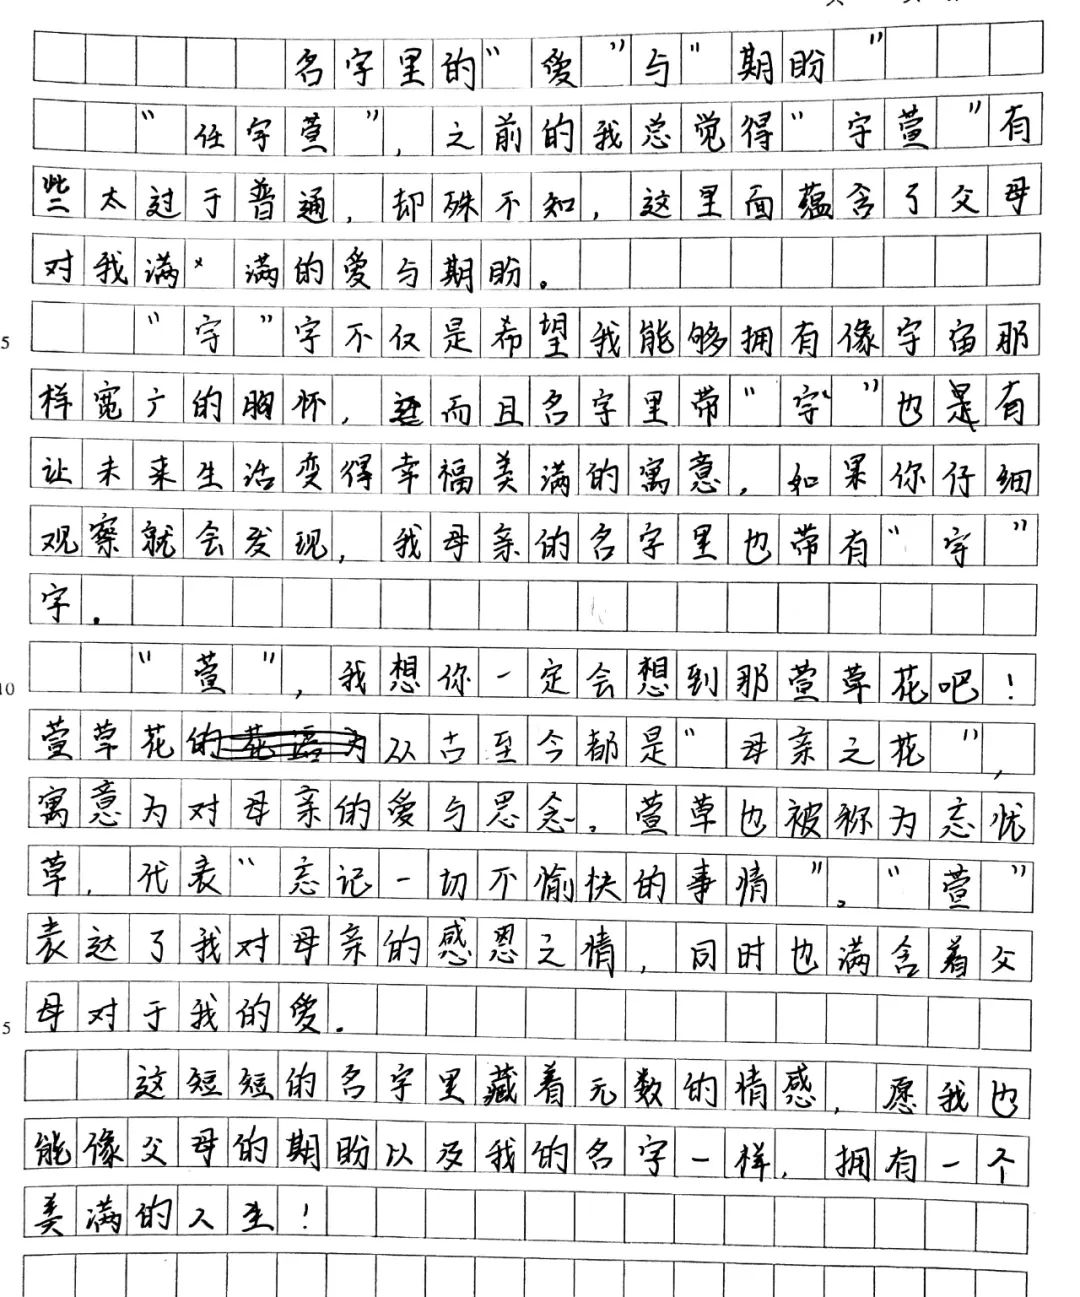 名字里的“爱”与“期盼”
“任宇萱”，之前的我总觉得“宇萱”有
些太过于普通，却殊不知，这里面蕴含了父母
对我满满的爱与期盼。
5 “宇”字不仅是希望我能够拥有像宇宙那
样宽广的胸怀，而且名字里带“宇”也是有
让未来生活变得幸福美满的寓意，如果你仔细
观察就会发现，我母亲的名字里也带有“宇”
字。
10 “萱”，我想你一定会想到那萱草花吧！
萱草花的从古至今都是“母亲之花”，
寓意为对母亲的爱与思念。萱草也被称为忘忧
草，代表“忘记一切不愉快的事情”。“萱”
表达了我对母亲的感恩之情，同时也满含着父
5 母对于我的爱。
这短短的名字里藏着无数的情感，愿我也
能像父母的期盼以及我的名字一样，拥有一个
美满的人生！